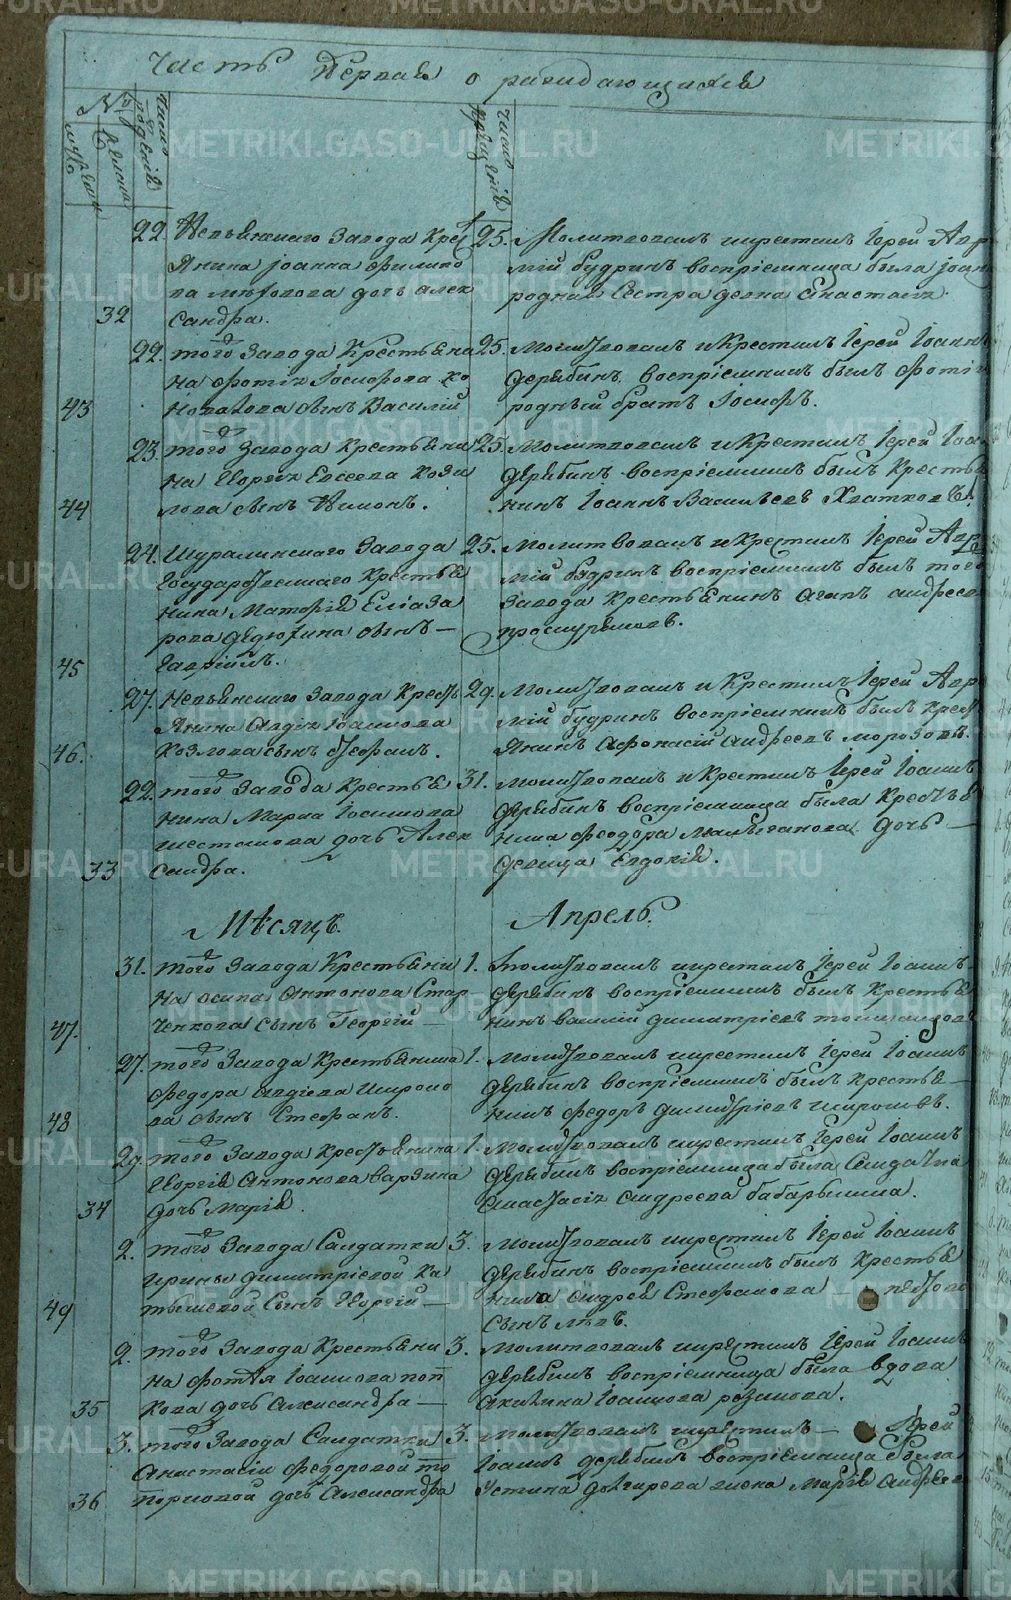 Часть Первая о раждающихся
№
мужеска
женска
Число рождений
Число крещений
22. Невьянскаго Завода Крес
тянина Іоанна Филипо
ва дочь Алек
32 сандра.
25. Молитвовалъ и крестилъ Іерей Авра
мій Будринъ воспріемница была Іоан
родная сестра девка Анастасія.
22. того Завода Крестьяни
на Фотія Іосифова Ко
43 новалова сынъ Василій
25. Молитвовалъ и Крестилъ Іерей Іоаннъ
Дерябинъ, воспріемникъ былъ Фотія
родный братъ Іосифъ.
23. того Завода Крестьяни
на Георгія Евсеева Коза
44 лова сынъ Филионъ.
25. Молитвовалъ и Крестилъ Іерей Іоан
Дерябинъ, воспріемникъ былъ Крестья
нинъ Іоаннъ Васильевъ Хватковъ.
24. Шуралинскаго Завода
Государственнаго Крестья
нина Елиаза
рова Дедюхина сынъ —
45 Гавріилъ.
25. Молитвовалъ и Крестилъ Іерей Авра
мій Будринъ воспріемникъ былъ того
Завода Крестьянинъ Агапъ Андреевъ
27. Невьянскаго Завода Кресть
янина Авдія Іоаннова
46. Козлова сынъ Стефанъ.
29. Молитвовалъ и Крестилъ Іерей Авра
мій Будринъ воспріемникъ былъ Крест
янинъ Афонасій Андреевъ Морозовъ.
22. того Завода Крестья
нина Марка Іоаннова
Шестакова дочь Алек
33 сандра.
31. Молитвовалъ и Крестилъ Іерей Іоаннъ
Дерябинъ воспріемница была Крестья
нина Феодора дочь —
девица Евдокія.
Мѣсяцъ. Апрель.
31. того Завода Крестьяни
на Осипа Антонова Стар
47. ченкова сынъ Георгій —
1. Молитвовалъ и крестилъ Іерей Іоаннъ
Дерябинъ воспріемникъ былъ Крестья
нинъ Василій Димитріевъ
27. того Завода Крестьянина
Федора Авдіева Широко
48 ва сынъ Стефанъ.
1. Молитвовалъ и крестилъ Іерей Іоаннъ
Дерябинъ воспріемникъ былъ Крестья —
нинъ Федоръ Димитріевъ Широковъ.
29. того Завода Крестьянина
Георгія Антонова Варзина
34 дочь Марія.
1. Молитвовалъ и крестилъ Іерей Іоаннъ
Дерябинъ воспріемница была Солдатка
Анастасія Андреева Бабарыкина.
2. того Завода Салдатки
Ирины Димитріевой Ка
49 тышевой Сынъ Георгій —
3. Молитвовалъ и крестилъ Іерей Іоаннъ
Дерябинъ воспріемникъ былъ Крестья
нина Андрея Стефанова —
сынъ Левъ.
2. того Завода Крестьяни
на Фотія Іоаннова Поп
35 кова дочь Александра —
3. Молитвовалъ и крестилъ Іерей Іоаннъ
Дерябинъ воспріемница была вдова
Акилина Іоаннова
3. того Завода Салдатки
Анастасіи Федоровой То
36 порковой дочь Александра
3. Молитвовалъ и крестилъ — Іерей
Іоаннъ Дерябинъ воспріемница была
Устина жена Марія Андреев
METRIKI.GASO-URAL.RU